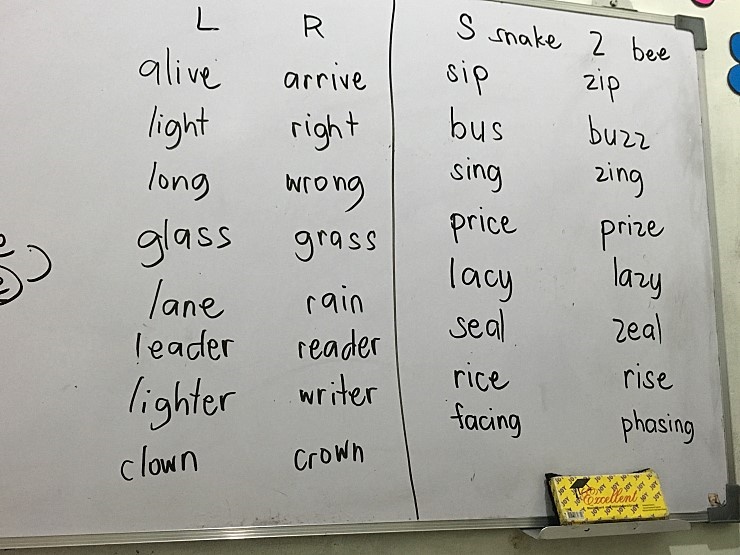 L R
alive arrive
light right
long wrong
glass grass
lane rain
leader reader
lighter writer
clown crown
S snake Z bee
sip zip
bus buzz
sing zing
price prize
lacy lazy
seal zeal
rice rise
facing phasing
Excellent